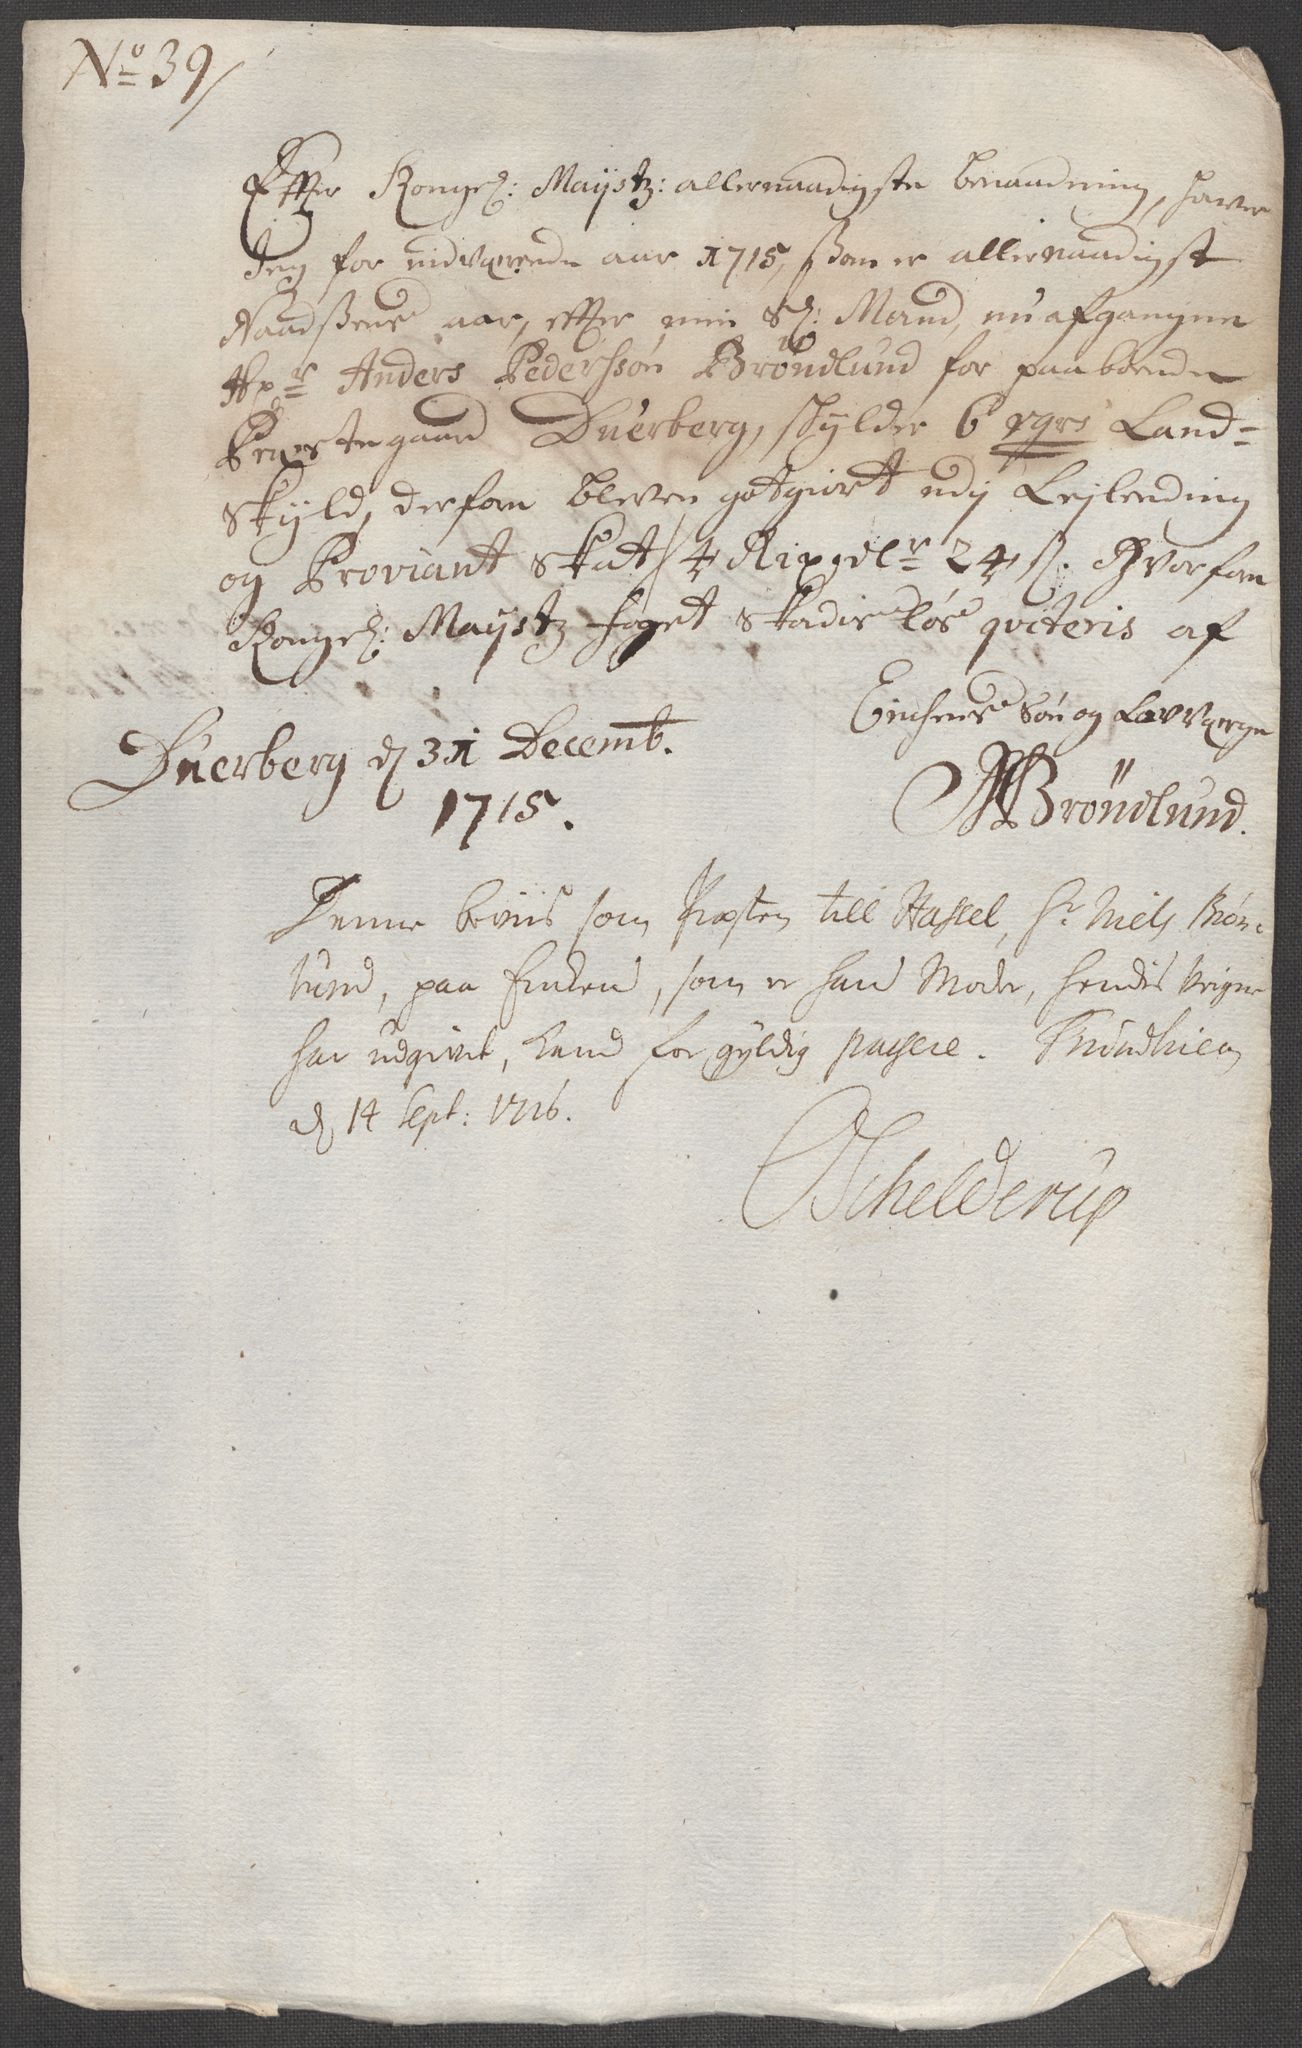 No 39/
Effter Kongel: Maÿstz: allernaadigste benaadning, haver
Jeg for indværende aar 1715, som er allernaadigst
Naadsens aar, efter min Sl: Mand, nu afgangne
Hr Anders Pederssøn Brøndlund for paaboende
Præstegaard Duerberg, skylder 6 Land-
skyld, derfor bleven gotgiort udj Leylending
og Proviant skat / 4 Rixdlr 24 s. Hvorfor
Kongel: Maÿstz foget skadisløs qviteris af
Enchens Søn og Lavværge
Duerberg d 31 Decemb.
1715.
Brøndlund.
Denne beviis som Præsten till Hassel, Hr Niels Brøn-
lund, paa Enken, som er hans Moder, hendis veigne
har udgivet, kand for gyldig passere. Trundhiem
d 14 Sept: 1716.
Schelderup